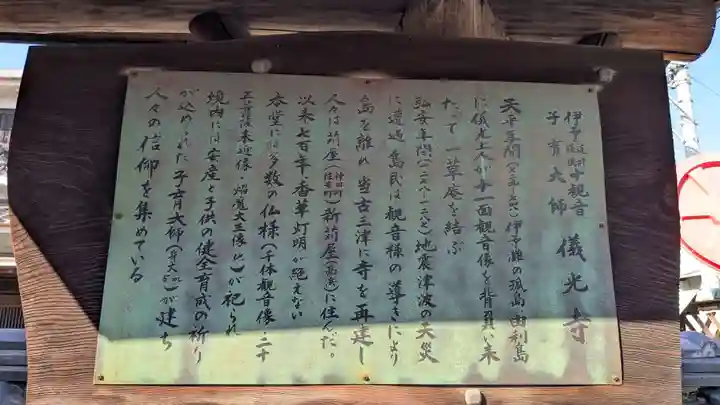 伊予道後十観音
子育大師
儀光寺
天平年間
伊予灘の孤島由利島
に儀光上人が十一面観音像を背負い来
たって一草庵を結ぶ
弘安年間(一二七八-一二八七)地震津波の天災
に遭遇島民は観音様の導きにより
島を離れ当古三津に寺を再建し
人々は苅屋(神田町 住吉町)新苅屋(高浜)に住んだ。
以来七百年香華灯明が絶えない
本堂には多数の仏様(千体観音像・二十
五菩薩来迎像・焔魔大王像 他)が祀られ
境内には安産と子供の健全育成の祈り
が込められた子育大師(身丈 )が建ち
人々の信仰を集めている